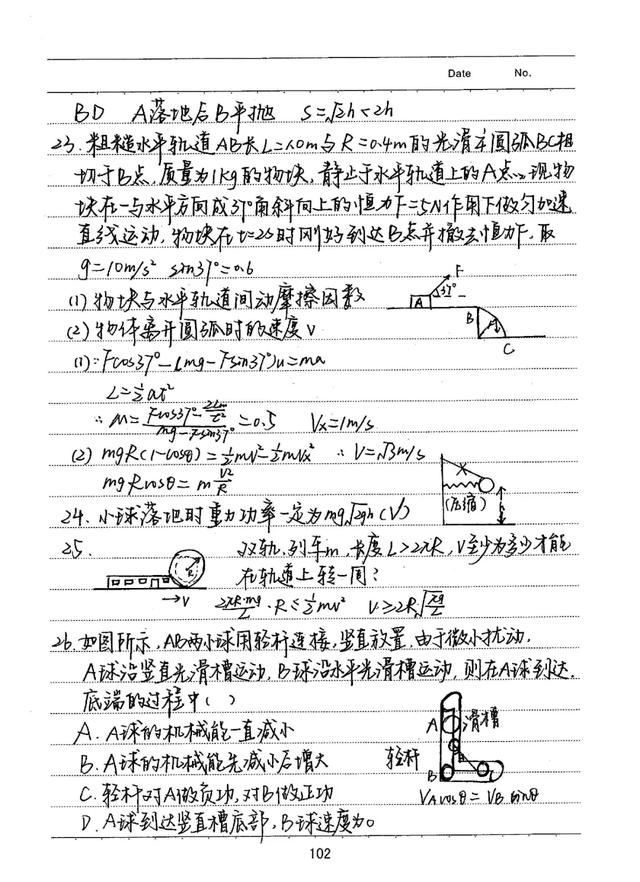 Date No.
BD A落地后B平抛 S=√2h<2h
23. 粗糙水平轨道AB长L=1.0m与R=0.4m的光滑本圆弧BC相
切于B点,质量为1kg的物块,静止于水平轨道上的A点。现物
块在一与水平方向成37°角斜向上的恒力F=5N作用下做匀加速
直线运动,物块在t=2s时刚好到达B点并撤去恒力F.取
g=10m/s² sin37°=0.6
F
(1)物块与水平轨道间动摩擦因数
A 37°
(2)物体离开圆弧时的速度v
B
C
(1)∵Fcos37°-(mg-Fsin37°)u=ma
L=½at²
∴ M= =0.5 Vx=1m/s
mg-Fsin37°
(2) mgR(1-cosθ)=½mv²-½mVx² ∴V=√3m/s
mgRcosθ=m V²/R
(压缩)
h
24. 小球落地时重力功率一定为mg√2gh (V)
25. 双轨,列车m,长度L>2πR,V至少为多少才能
R
在轨道上转一周?
→V
2πR·mg/L·R≤½mv² V≥2R√πg/L
26. 如图所示,AB两小球用轻杆连接,竖直放置,由于微小扰动,
A球沿竖直光滑槽运动,B球沿水平光滑槽运动,则在A球到达
底端的过程中( )
A. A球的机械能一直减小
A 滑槽
B. A球的机械能先减小后增大
轻杆
B
C. 轻杆对A做负功,对B做正功
VAcosθ=VBsinθ
D. A球到达竖直槽底部,B球速度为0
102